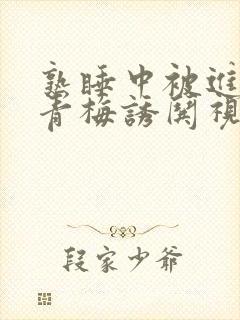 熟睡中被進
青梅誘関視
段家少爺